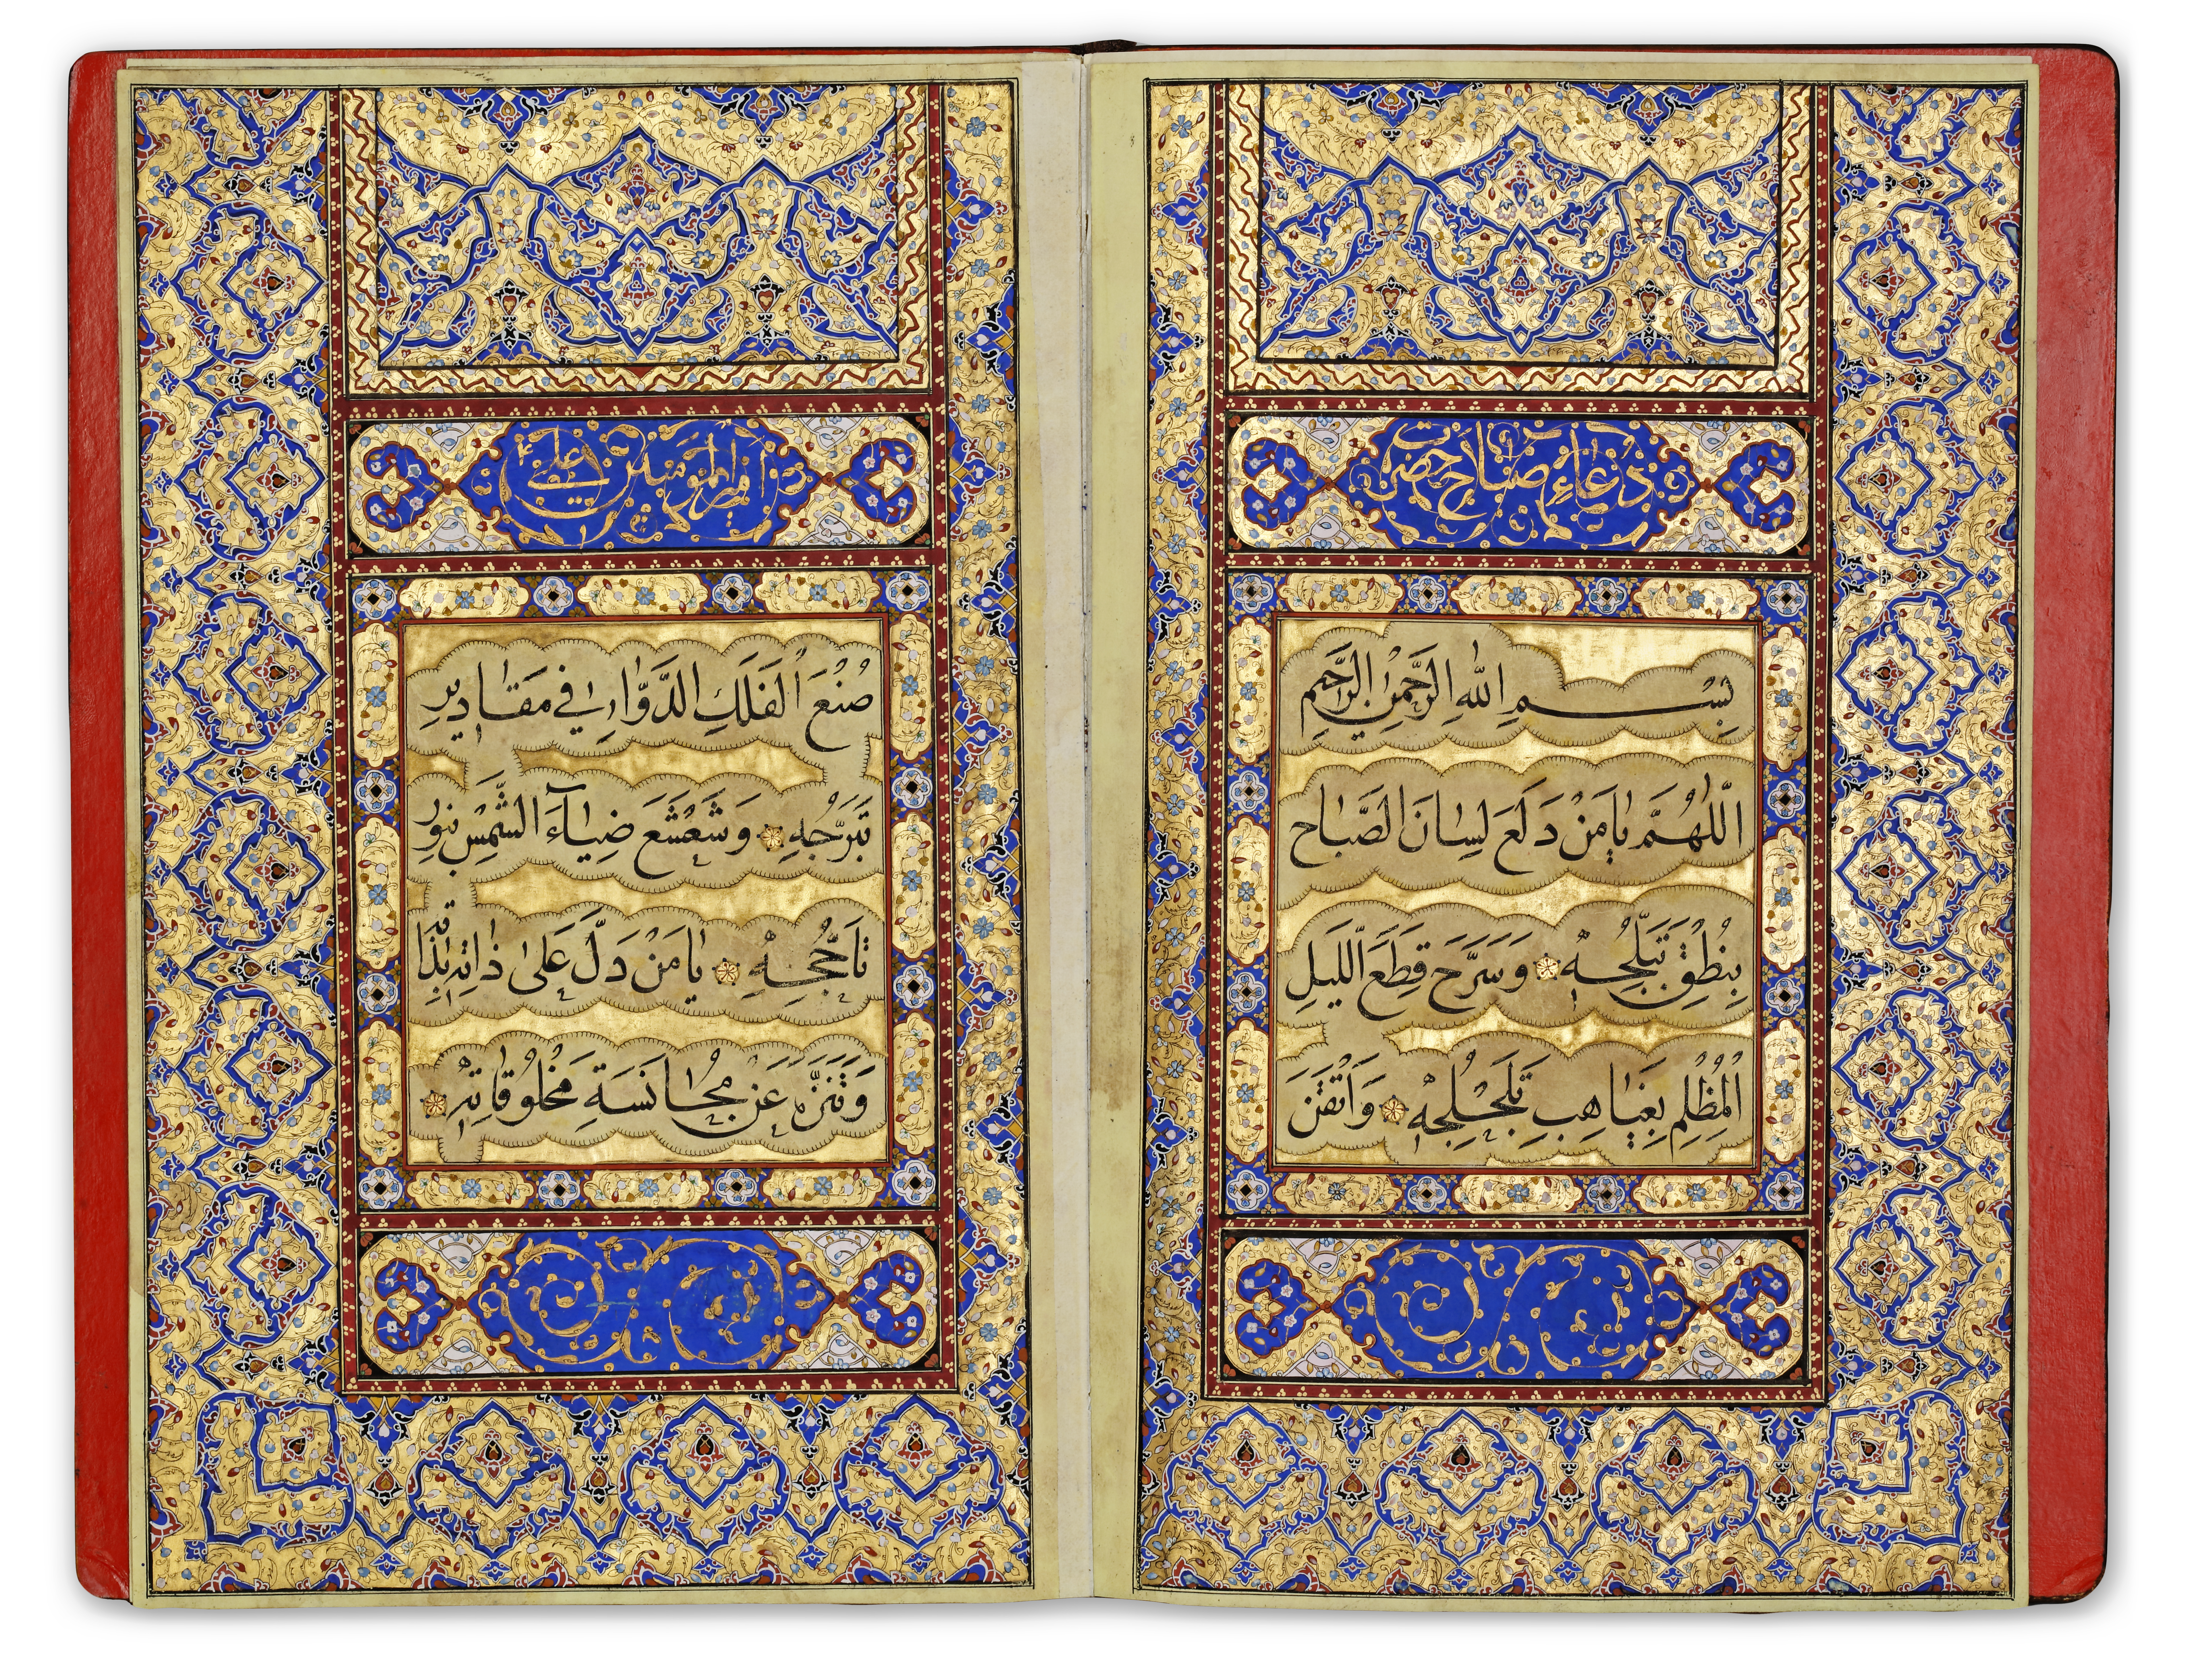 دُعَاءِ صَبَاح حضرت
بِسْمِ اللهِ الرَّحْمٰنِ الرَّحِيمِ
اَللّٰهُمَّ يٰا مَنْ دَلَعَ لِسٰانَ الصَّبٰاحِ
بِنُطْقِ تَبَلُّجِهِ وَسَرَّحَ قِطَعَ اللَّيْلِ
الْمُظْلِمِ بِغَيٰاهِبِ تَلَجْلُجِهِ وَاَتْقَنَ
امير المؤمنين على
صُنْعَ الْفَلَكِ الدَّوّٰارِ فِي مَقٰادِيرِ
تَبَرُّجِهِ وَشَعْشَعَ ضِيٰاءَ الشَّمْسِ بِنُورِ
تَأَجُّجِهِ يٰا مَنْ دَلَّ عَلىٰ ذٰاتِهِ بِذٰاتِهِ
وَتَنَزَّهَ عَنْ مُجٰانَسَةِ مَخْلُوقٰاتِهِ